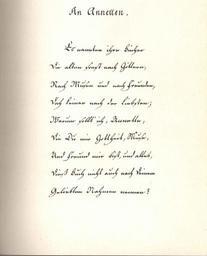 An Annetten.
Es nannten ihre Bücher
Die alten sonst nach Göttern,
Nach Musen und nach Freunden,
Doch keiner nach der Liebsten;
Warum sollt' ich, Annette,
Die Du mir Gottheit, Muse,
Und Freund mir bist, und alles,
Dieß Buch nicht auch nach Deinem
Geliebten Nahmen nennen?